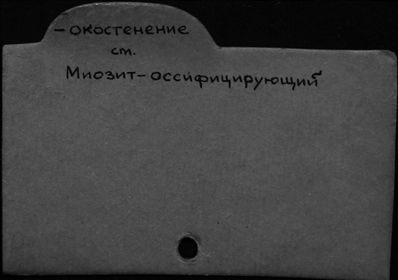 -окостенение
ст.
Миозит-оссифицирующий